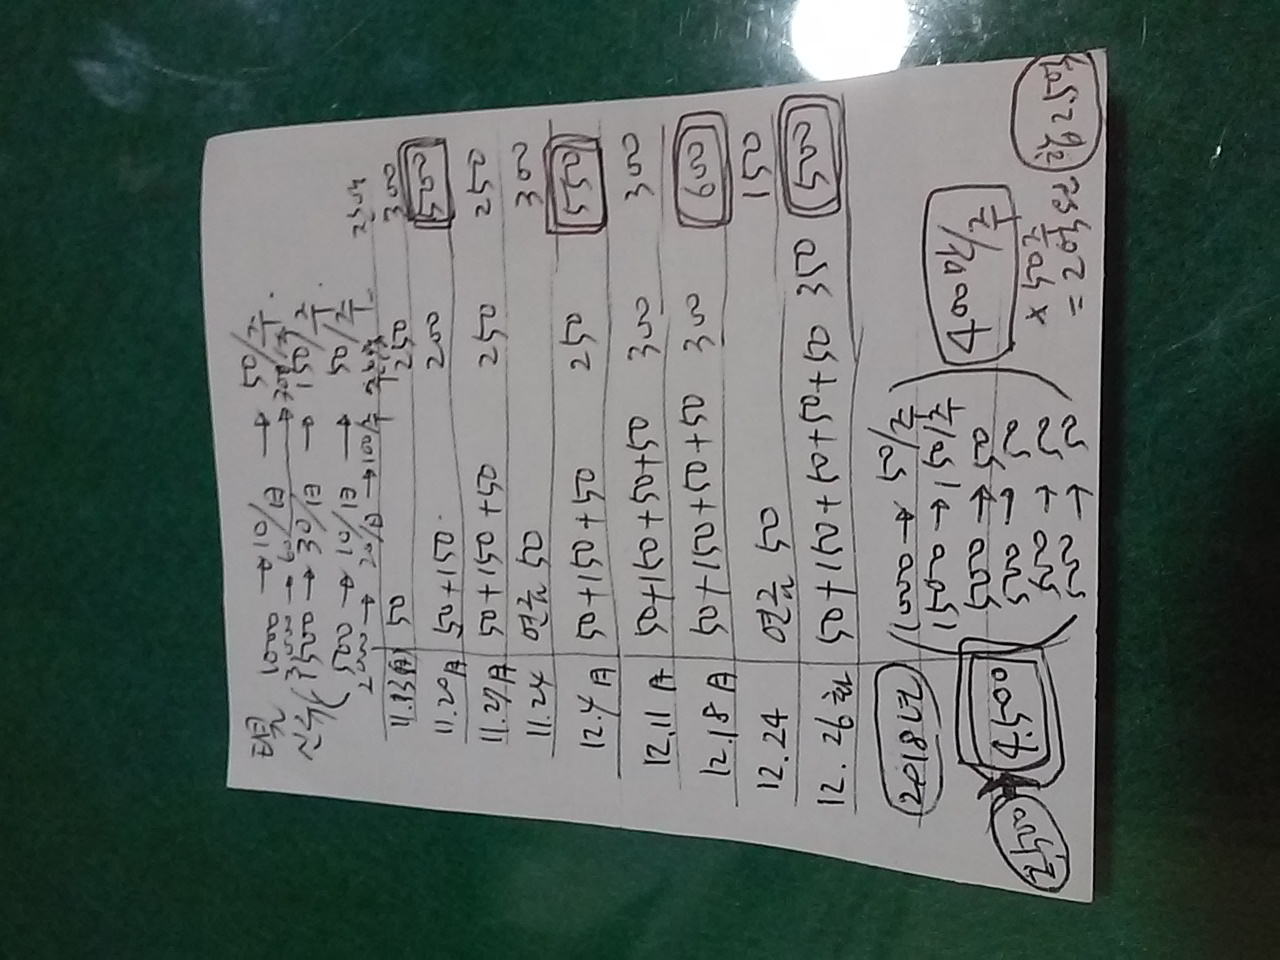 1000 → 10/日 → 50/주.
3000 → 60/日 → 300/주
1500 → 30/日 → 150/주.
500 → 10/日 → 50/주
2000 → 20/日 → 100/주 잔액
11.13月 50 250 300
11.20月 50+150 200 500
11.27月 50+150+50 250 250
11.24 연금 50 300
12.4月 50+150+50 250 550
12.11月 50+150+50+50 300 300
12.18月 50+150+50+50 300 600
12.24 연금 50 150
12.26화 50+150+50+50+50 350 500
2018년 1000 → 50/주
1500 → 150/주 400만/주
4.500 500 → 50
500 → 50 × 50주
500 → 50 = 2억
500 → 50 2.5억